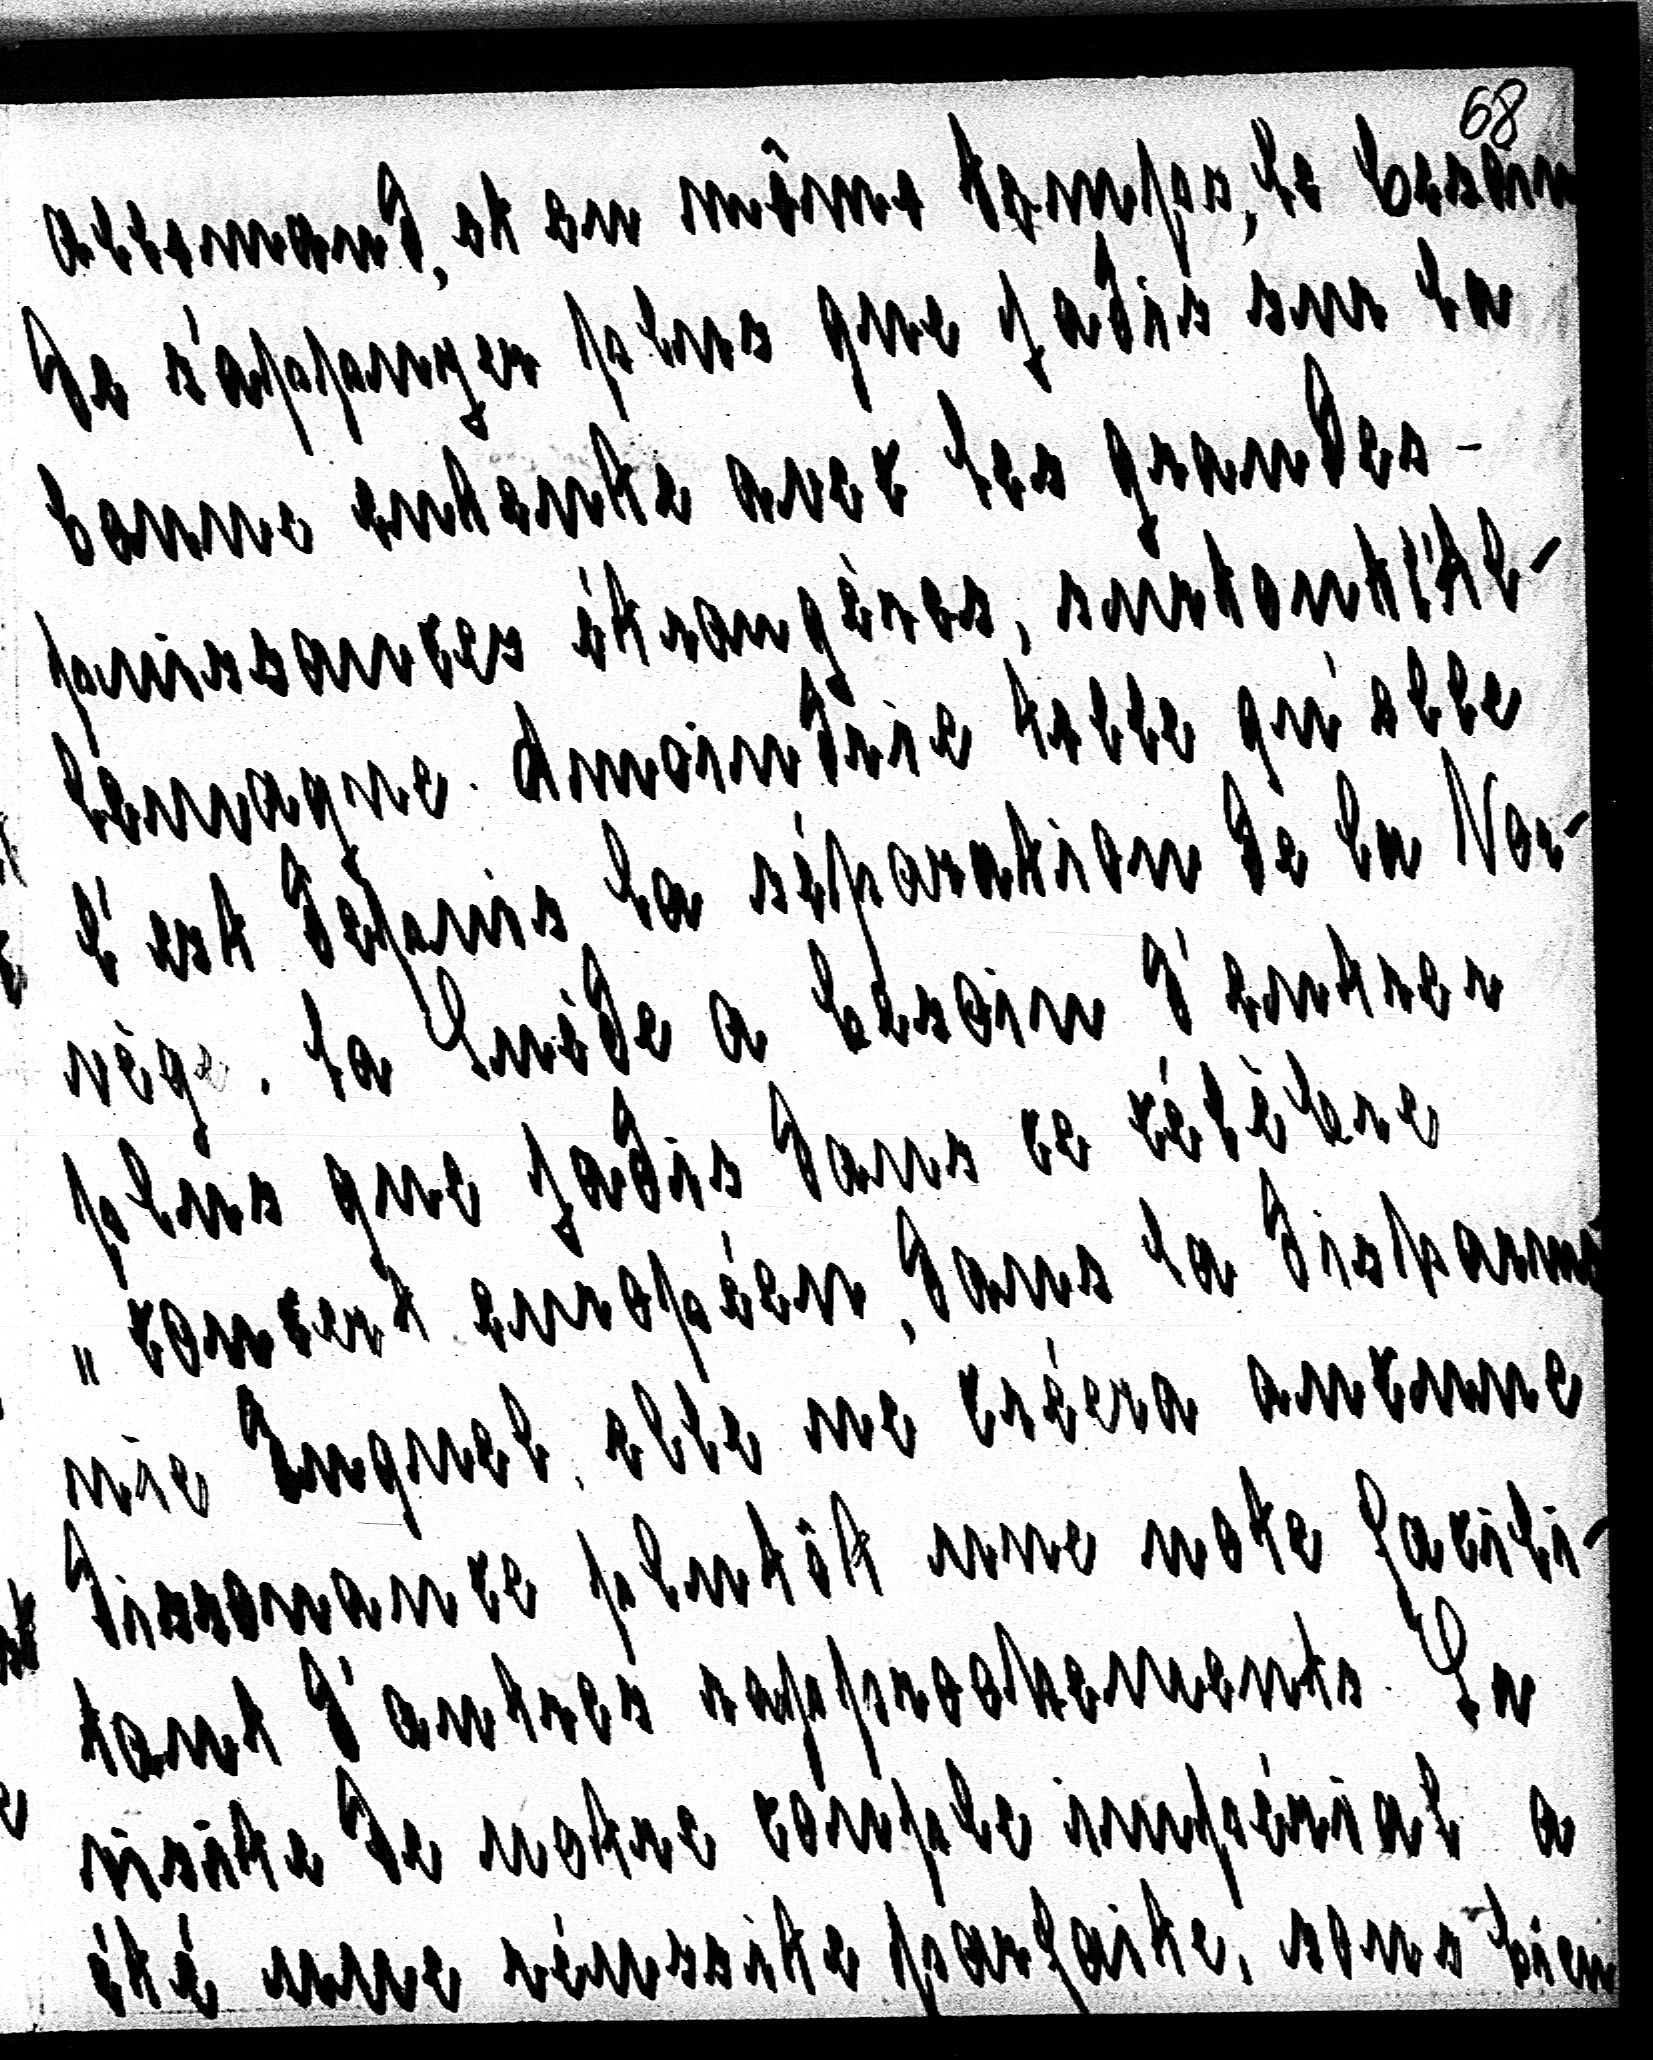 68
allemand, et en même temps, le besoin
de s'appuyer plus que jadis sur la
bonne entente avec les grandes -
puissances étrangères, surtout l'Al-
lemagne. Amoindrie telle qu'elle
l'est depuis la séparation de la Nor-
vège. la Suède a besoin d'entrer
plus que jadis dans ce célèbre
„ concert européen, dans la disharmo
nie duquel, elle ne créera aucune
dissonance plutôt une note facili-
tant d'autres rapprochements. La
visite de notre couple impérial a
été une réussite parfaite, sous bien